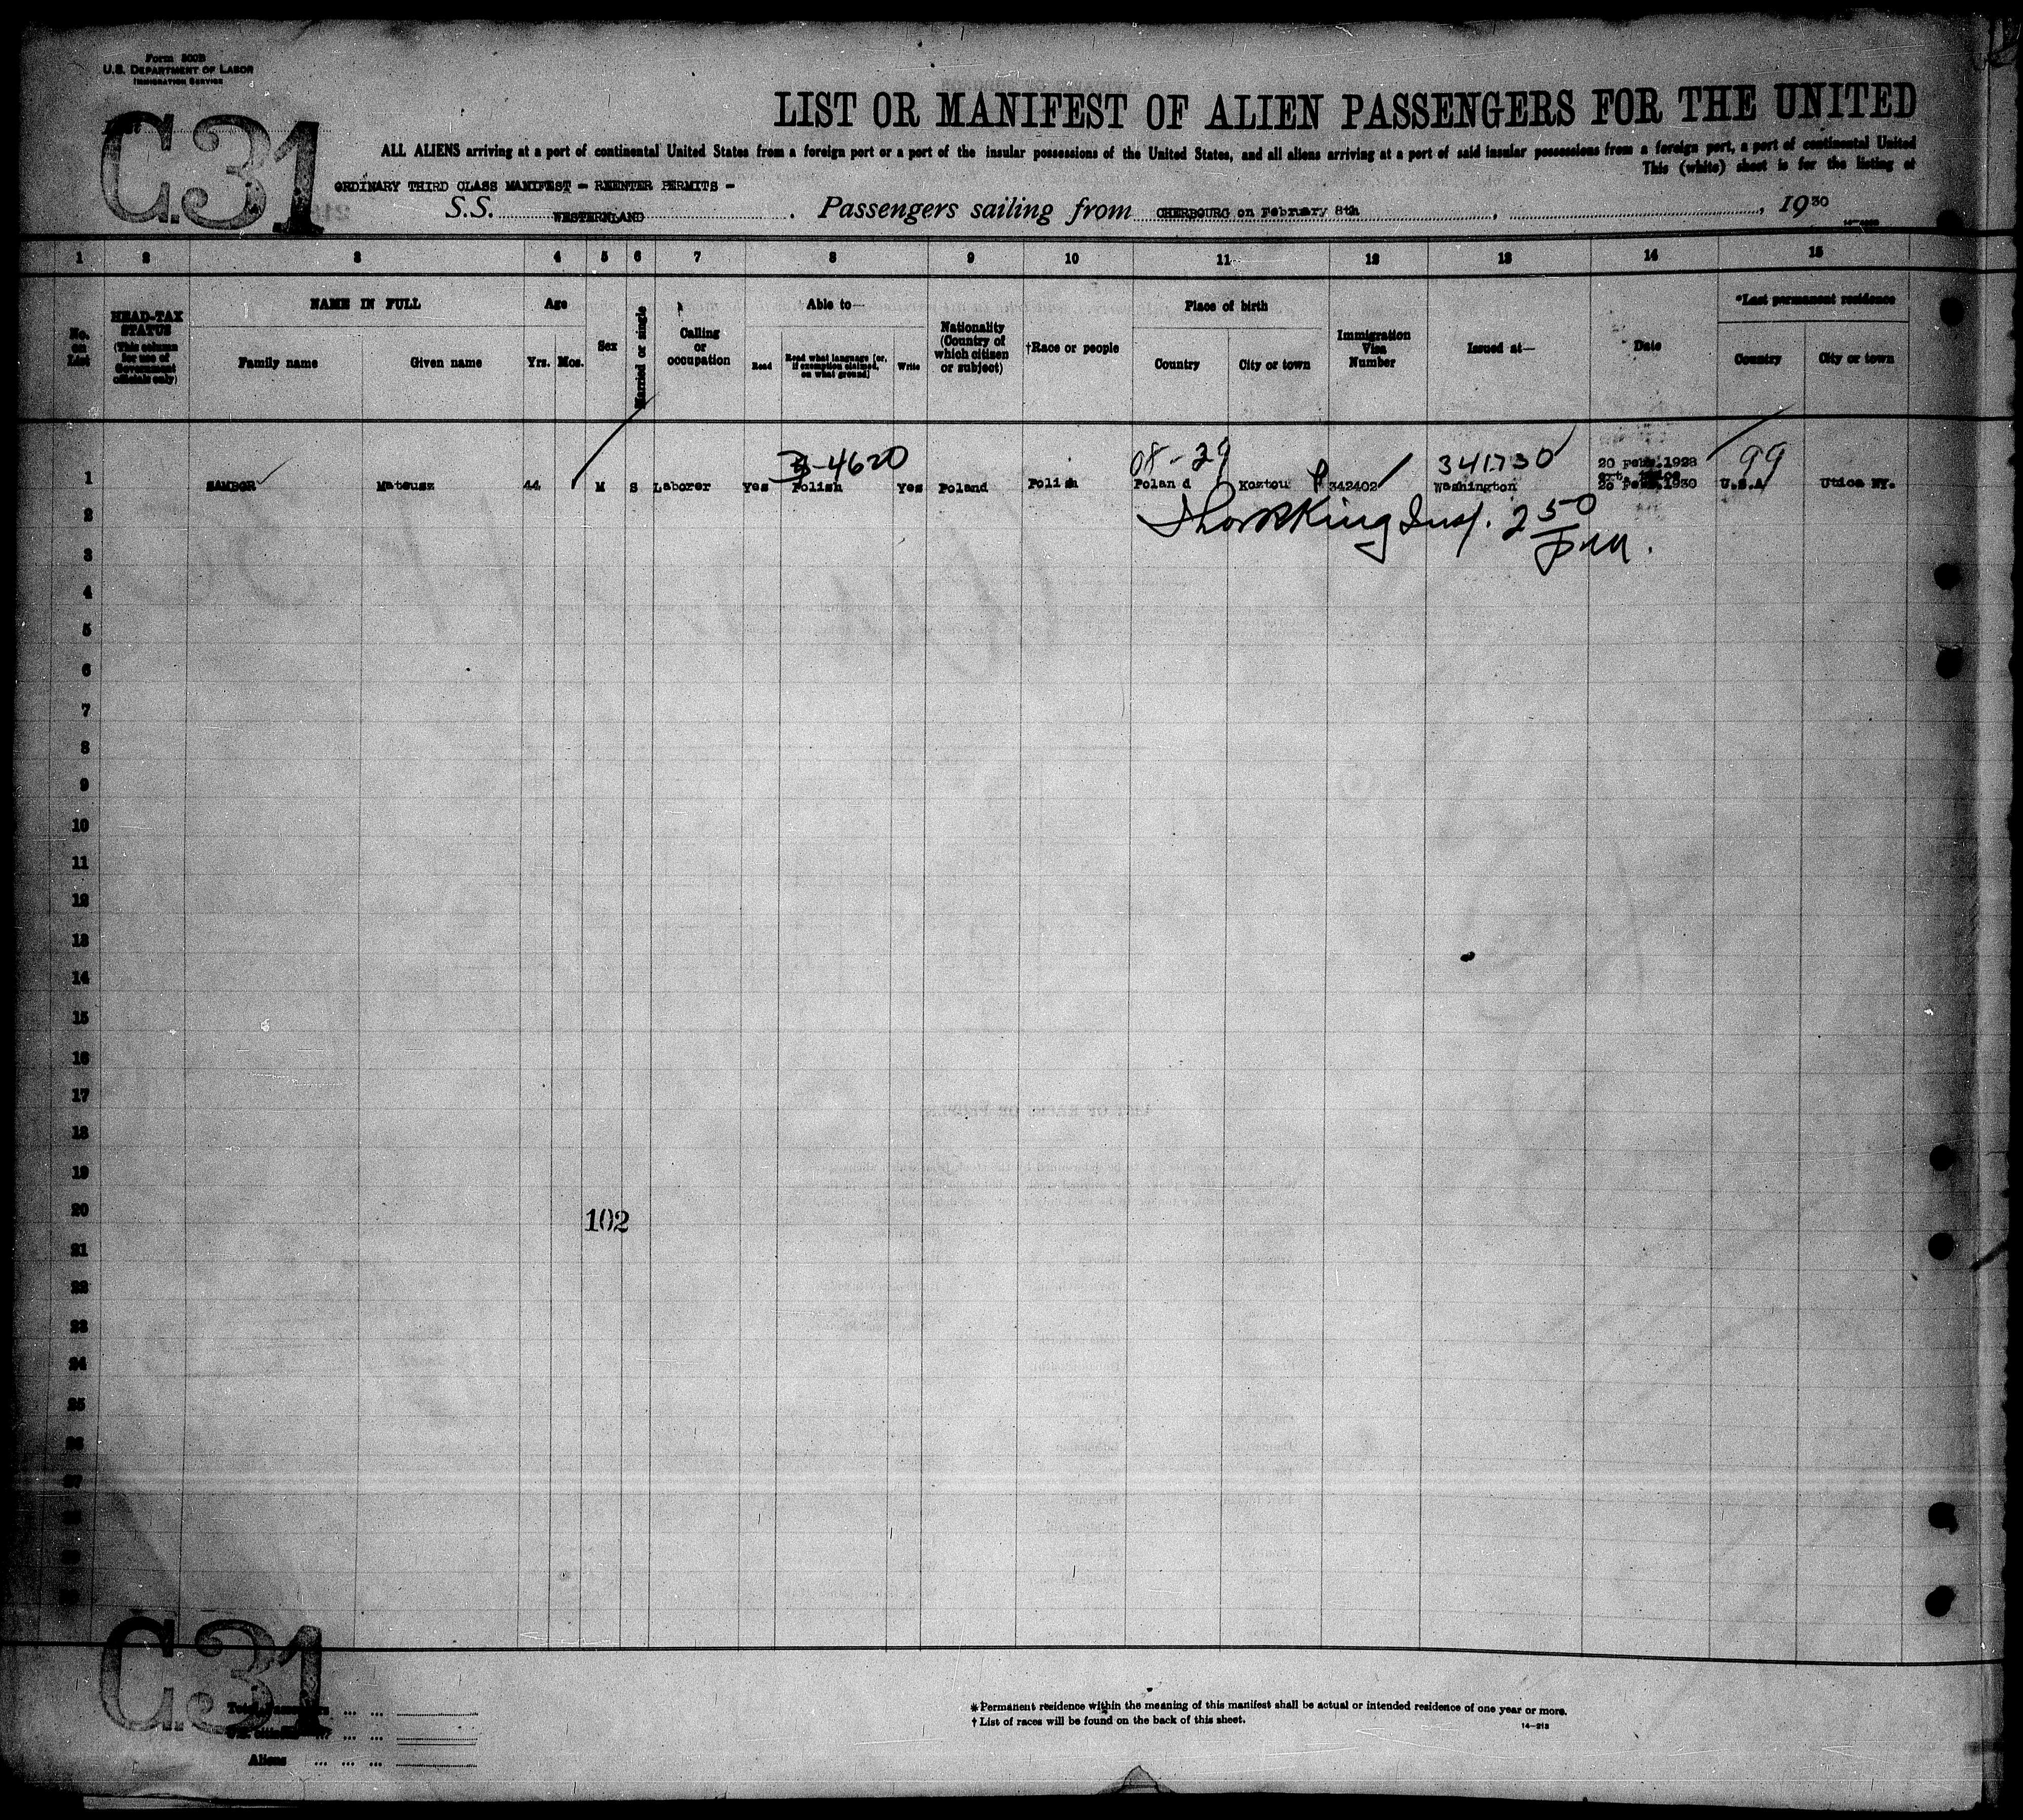 Form 500B
U.S. DEPARTMENT OF LABOR
IMMIGRATION SERVICE
C.31
LIST OR MANIFEST OF ALIEN PASSENGERS FOR THE UNITED
ALL ALIENS arriving at a port of continental United States from a foreign port or a port of the insular possessions of the United States, and all aliens arriving at a port of said insular possessions from a foreign port, a port of continental United
This (white) sheet is for the listing of
ORDINARY THIRD CLASS MANIFEST - REENTER PERMITS -
S.S. WESTERNLAND. Passengers sailing from CHERBOURG on February 8th, 1930
1 2 3 4 5 6 7 8 9 10 11 12 13 14 15
No. on List
HEAD-TAX STATUS (This column for use of Government officials only)
NAME IN FULL
Family name Given name
Age
Yrs. Mos.
Sex
Married or single
Calling or occupation
Able to—
Read
Read what language [or, if exemption claimed, on what ground]
Write
Nationality (Country of which citizen or subject)
†Race or people
Place of birth
Country City or town
Immigration Visa Number
Issued at—
Date
*Last permanent residence
Country City or town
3-4620 08-29 341730 99
20 Feby.1928
1 SAMBOR Mateusz 44 M S Laborer Yes Polish Yes Poland Polish Poland Koztou 342402 Washington 20 Feby.1930 U.S.A Utica NY.
King Insp. 2 50 P.M.
2
3
4
5
6
7
8
9
10
11
12
13
14
15
16
17
18
19
20
102
21
22
23
24
25
26
27
C.31
Aliens
* Permanent residence within the meaning of this manifest shall be actual or intended residence of one year or more.
† List of races will be found on the back of this sheet.
14-213